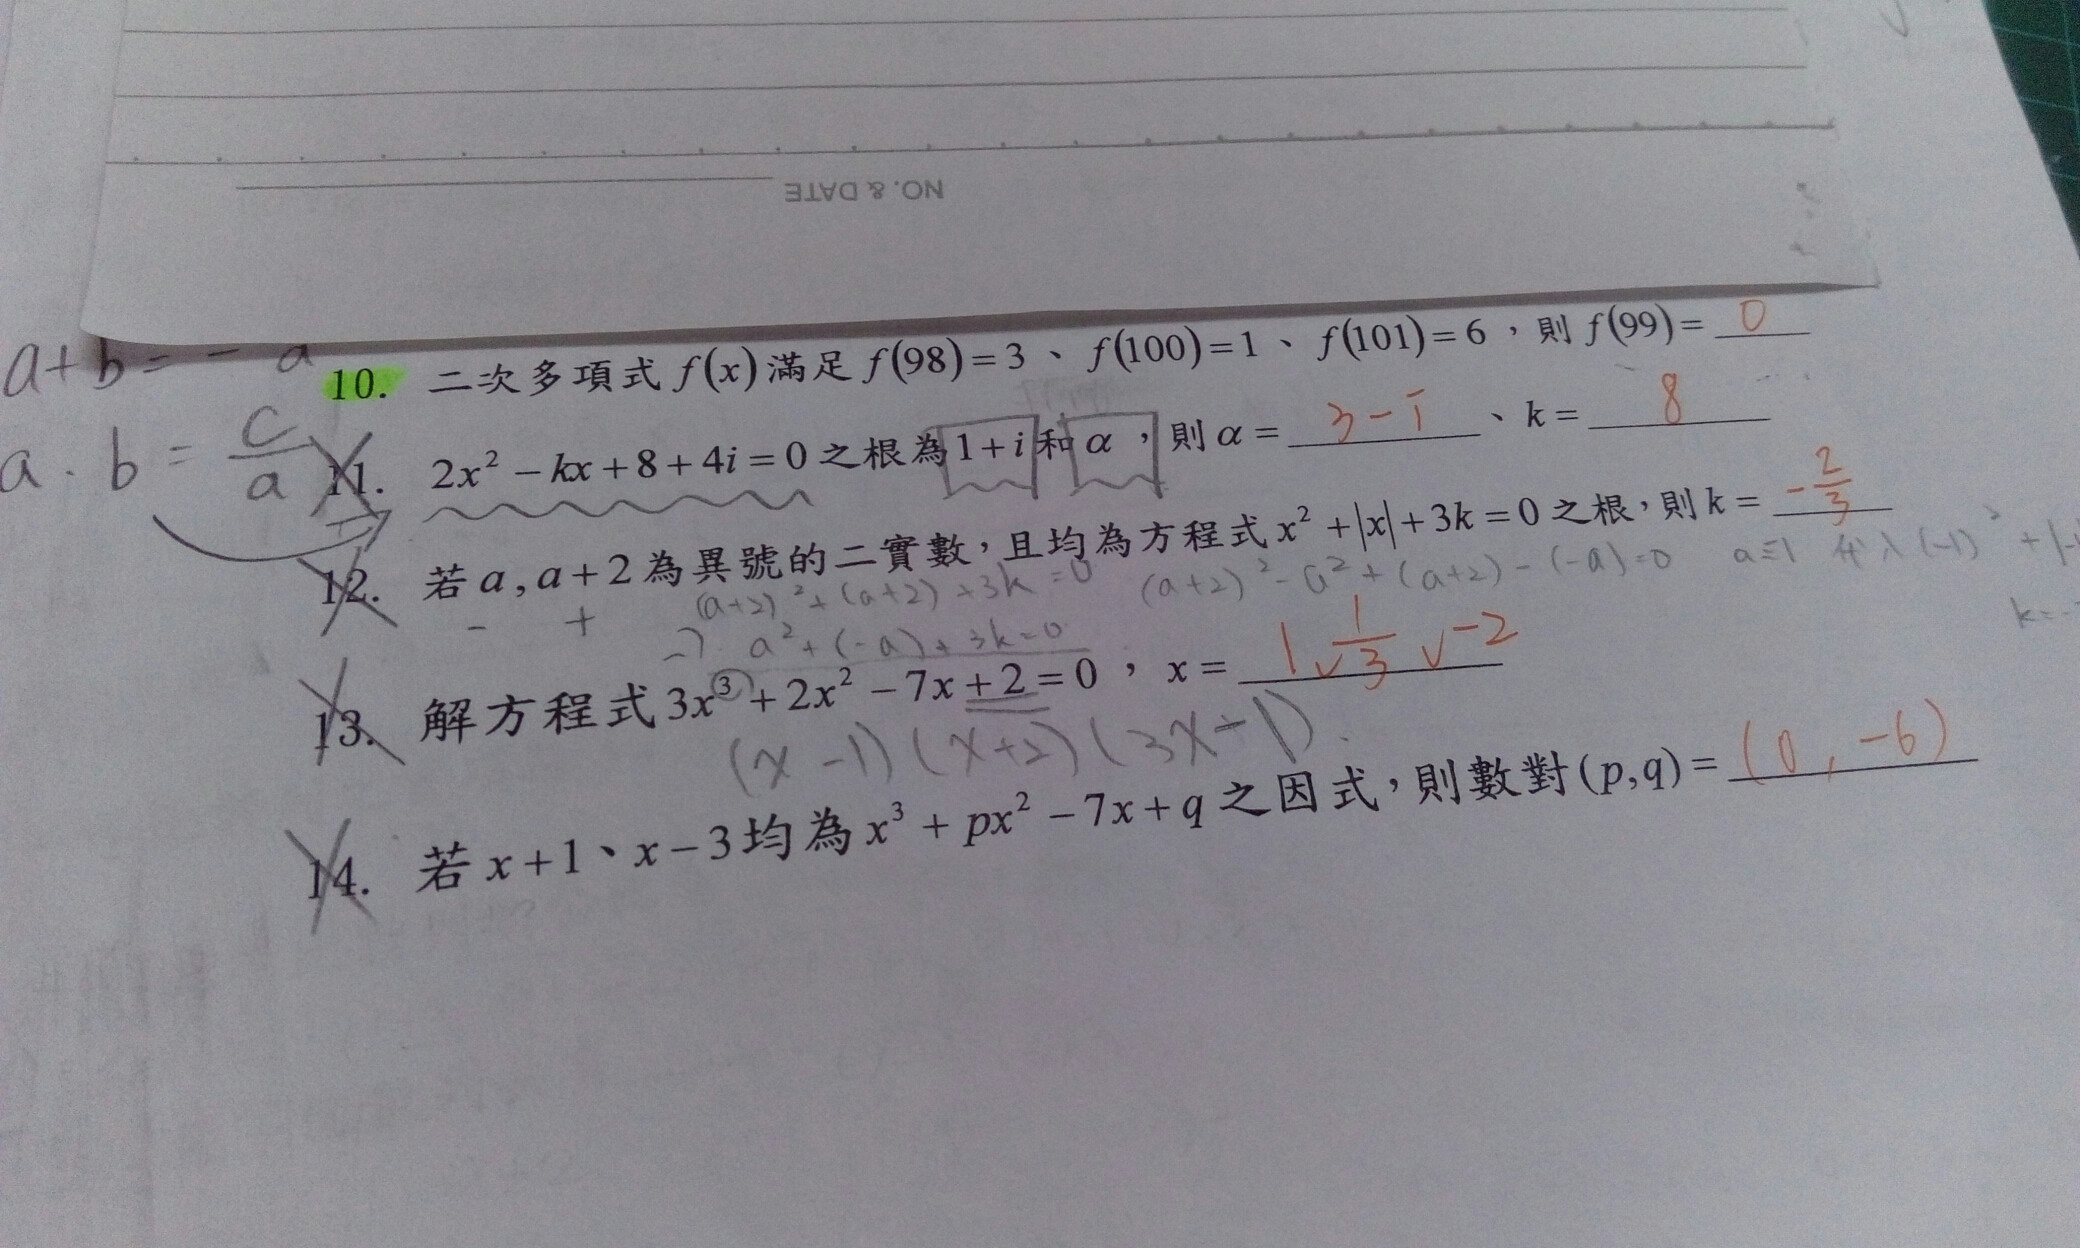 NO. & DATE
a+b=-a
10. 二次多項式 f(x) 滿足 f(98)=3、f(100)=1、f(101)=6，則 f(99)= 0
a·b = c/a
11. 2x² − kx + 8 + 4i = 0 之根為 1+i 和 α，則 α = 3−i、k = 8
12. 若 a, a+2 為異號的二實數，且均為方程式 x² + |x| + 3k = 0 之根，則 k = −2/3
− +
(a+2)² + (a+2) + 3k = 0 (a+2)² − a² + (a+2) − (−a) = 0
−) a² + (−a) + 3k = 0
13. 解方程式 3x³ + 2x² − 7x + 2 = 0，x = 1 ∨ 1/3 ∨ −2
(x−1)(x+2)(3x−1)
14. 若 x+1、x−3 均為 x³ + px² − 7x + q 之因式，則數對 (p,q) = (0, −6)